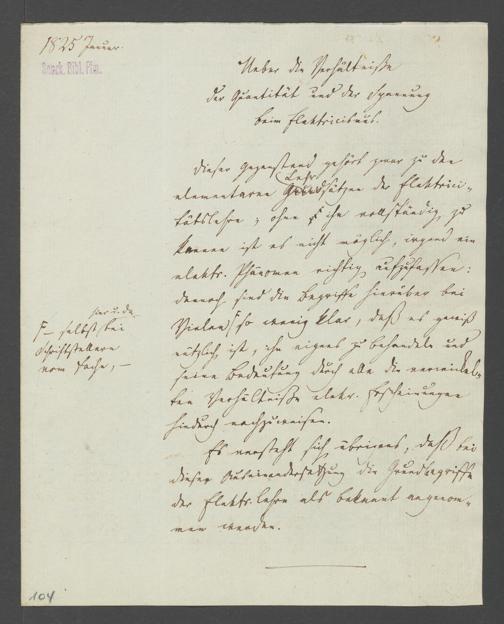 1825 Januar.
Staatl. Bibl. Pssu.
Ueber die Verhältniße
der Quantität und der Spannung
beim Elektricismus.
Dieser Gegenstand gehört zwar zu den
elementaren Lehrsätzen der Elektrici-
tätslehre; ohne ihn vollständig zu
kennen ist es nicht möglich, irgend ein
elektr. Phänomen richtig aufzufassen:
dennoch sind die Begriffe hierüber bei
Vielen so wenig klar, daß es gewiß
nützlich ist, ihn eigens zu behandeln und
seine Bedeutung durch alle die verwickel-
ten Verhältniße elektr. Erscheinungen
hindurch nachzuweisen.
Es versteht sich übrigens, daß bei
dieser Auseinandersetzung die Grundbegriffe
der Elektr.lehre als bekannt angenom-
men werden.
hie u. da
F– selbst bei
Schriftstellern
vom Fache, –
104